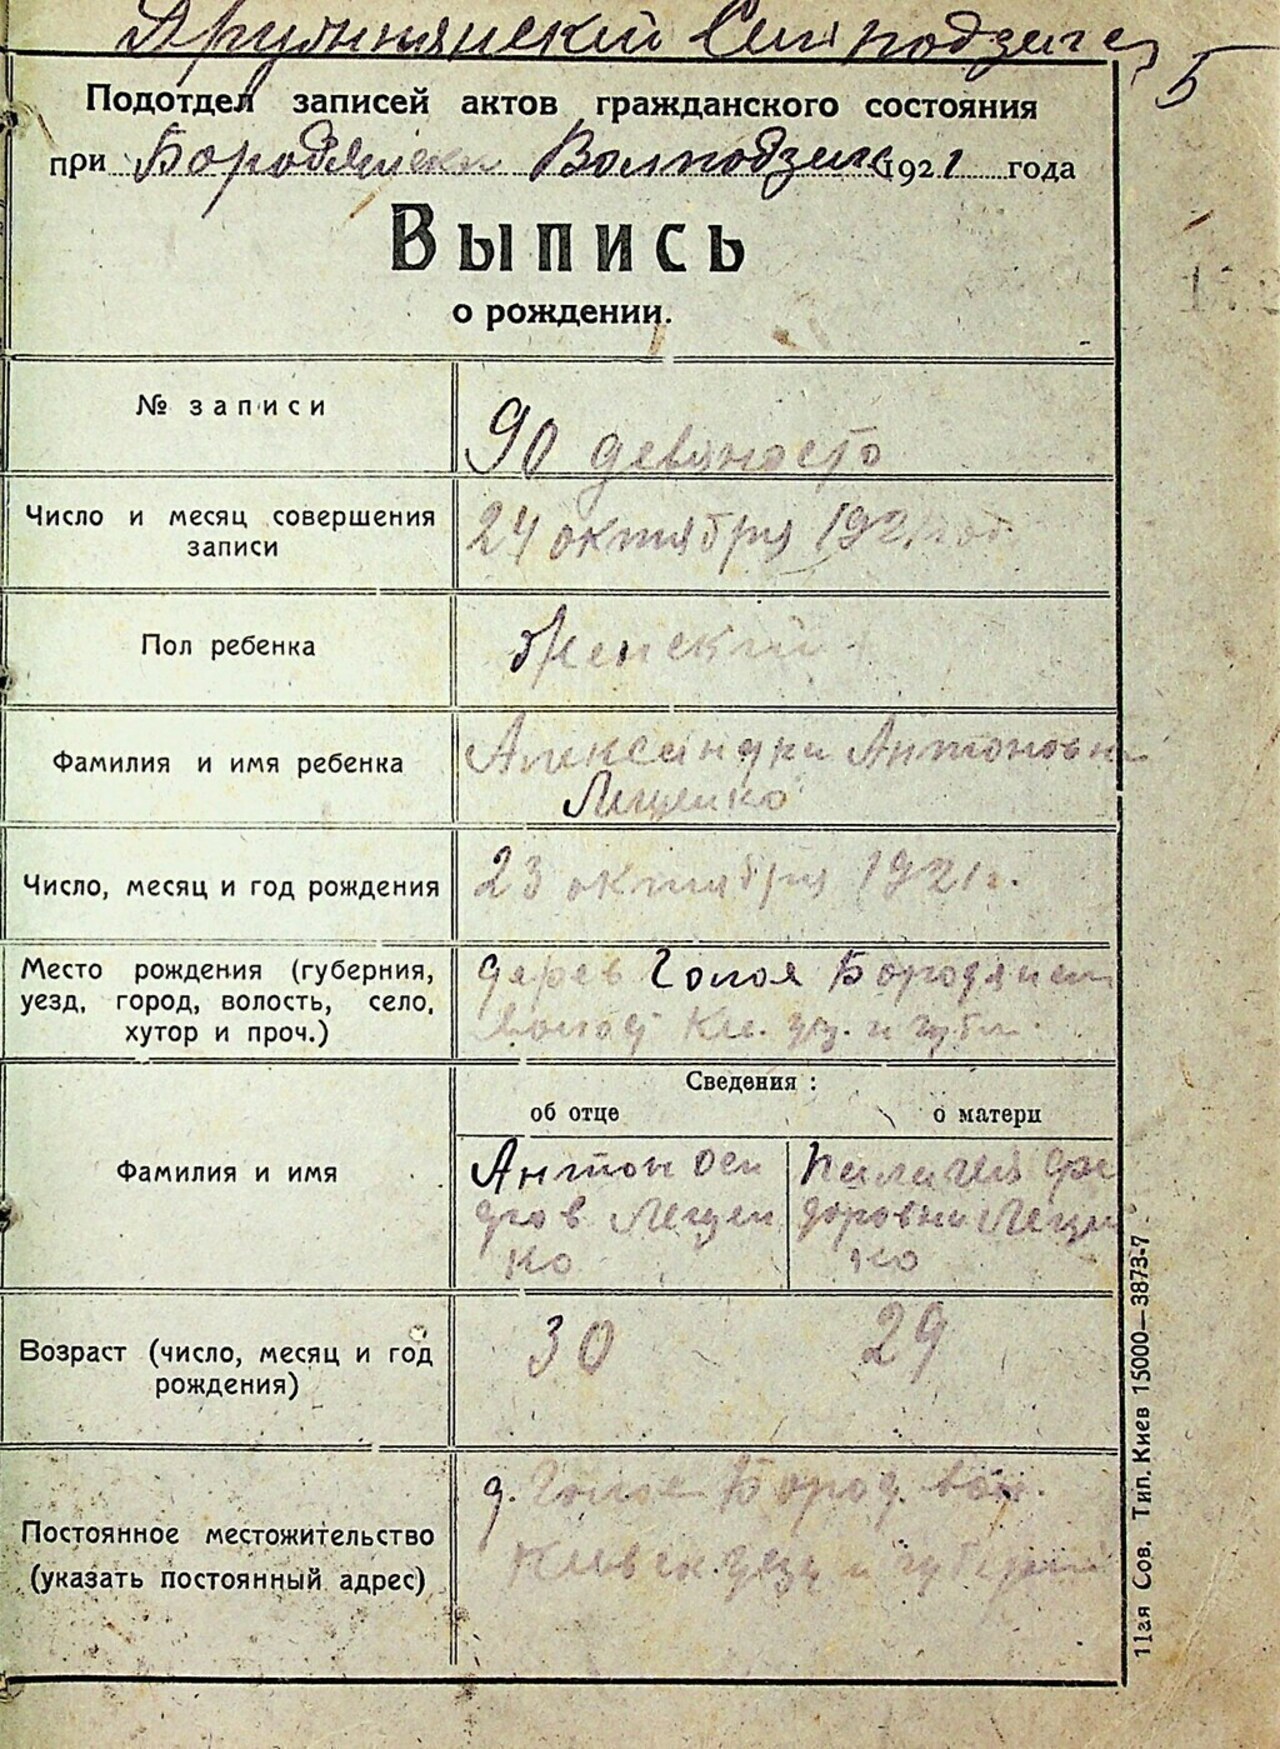 5
Подотдел записей актов гражданского состояния
при Бородянск Волподзаге 1921 года
Выпись
о рождении.
№ записи
90 девяносто
Число и месяц совершения
записи
24 октября 1921 год
Пол ребенка
Женский
Фамилия и имя ребенка
Александра Антоновна
Лещенко
Число, месяц и год рождения
23 октября 1921 г.
Место рождения (губерния,
уезд, город, волость, село,
хутор и проч.)
дерев Голоя Бородянск
Ки. уез. и губ.
Сведения :
об отце
о матери
Фамилия и имя
Антон
Лещен
ко
Пелагея Фе
доровна Лещен
ко
Возраст (число, месяц и год
рождения)
30
29
Постоянное местожительство
(указать постоянный адрес)
д. Бород. вол.
Киевск. уезд и губерний
11ая Сов. Тип. Киев 15000—3873-7